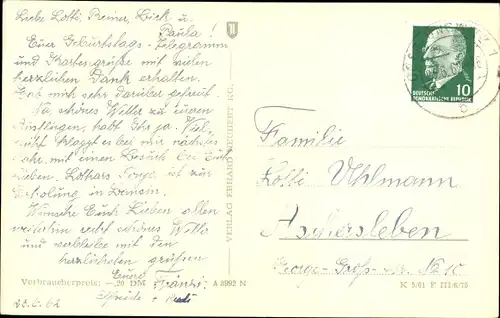 Liebe Lotti, Reiner, Dick u.
Paula!
Euer Geburtstags-Telegramm
und Kartengrüße mit vielen
herzlichen Dank erhalten.
Hab mich sehr darüber gefreut.
Na, schönes Wetter zu euren
Ausflügen, habt Ihr ja. Viel-
leicht klappt es bei mir nächstes
Jahr mit einen Besuch bei Euch
Lieben. Lothars Sonja ist zur
Erholung in
Wünsche Euch Lieben allen
weiterhin recht schönes Wetter
und verbleibe mit den
herzlichsten grüßen
Eure Fränzi
+
23.6.62
Verbraucherpreis: -,20 DM
A 8992 N
VERLAG ERHARD NEUBERT KG.
10
DEUTSCHE
DEMOKRATISCHE REPUBLIK
b
Familie
Lotti Uhlmann
Aschersleben
Georg- Str. No 10
K 5/61 F III/6/75